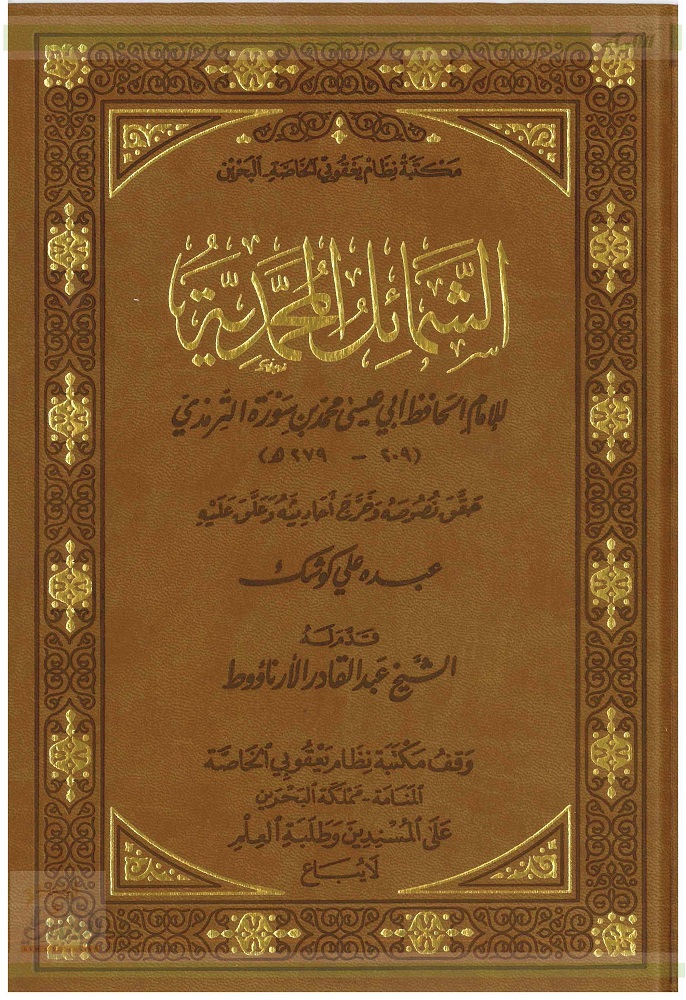 مَكْتَبَةُ نِظَامْ يَعْقُوبِي الْخَاصَّةِ - الْبَحْرَيْن
الشَّمَائِلُ الْمُحَمَّدِيَّةُ
للإمام الحافظ أبي عيسى محمد بن سَوْرَة الترمذي
(٢٠٩ - ٢٧٩ هـ)
حَقَّقَ نُصُوصَهُ وَخَرَّجَ أَحَادِيثَهُ وَعَلَّقَ عَلَيْهِ
عبده علي كوشك
قَدَّمَ لَهُ
الشَّيْخ عَبد القَادر الأرناؤوط
وَقْفُ مَكْتَبَةِ نِظَام يَعْقُوبِي الْخَاصَّة
المنَامَة - مَمْلَكَة البَحْرَين
عَلَى الْمُسْنِدِينَ وَطَلَبَةِ الْعِلْمِ
لَا يُبَاع